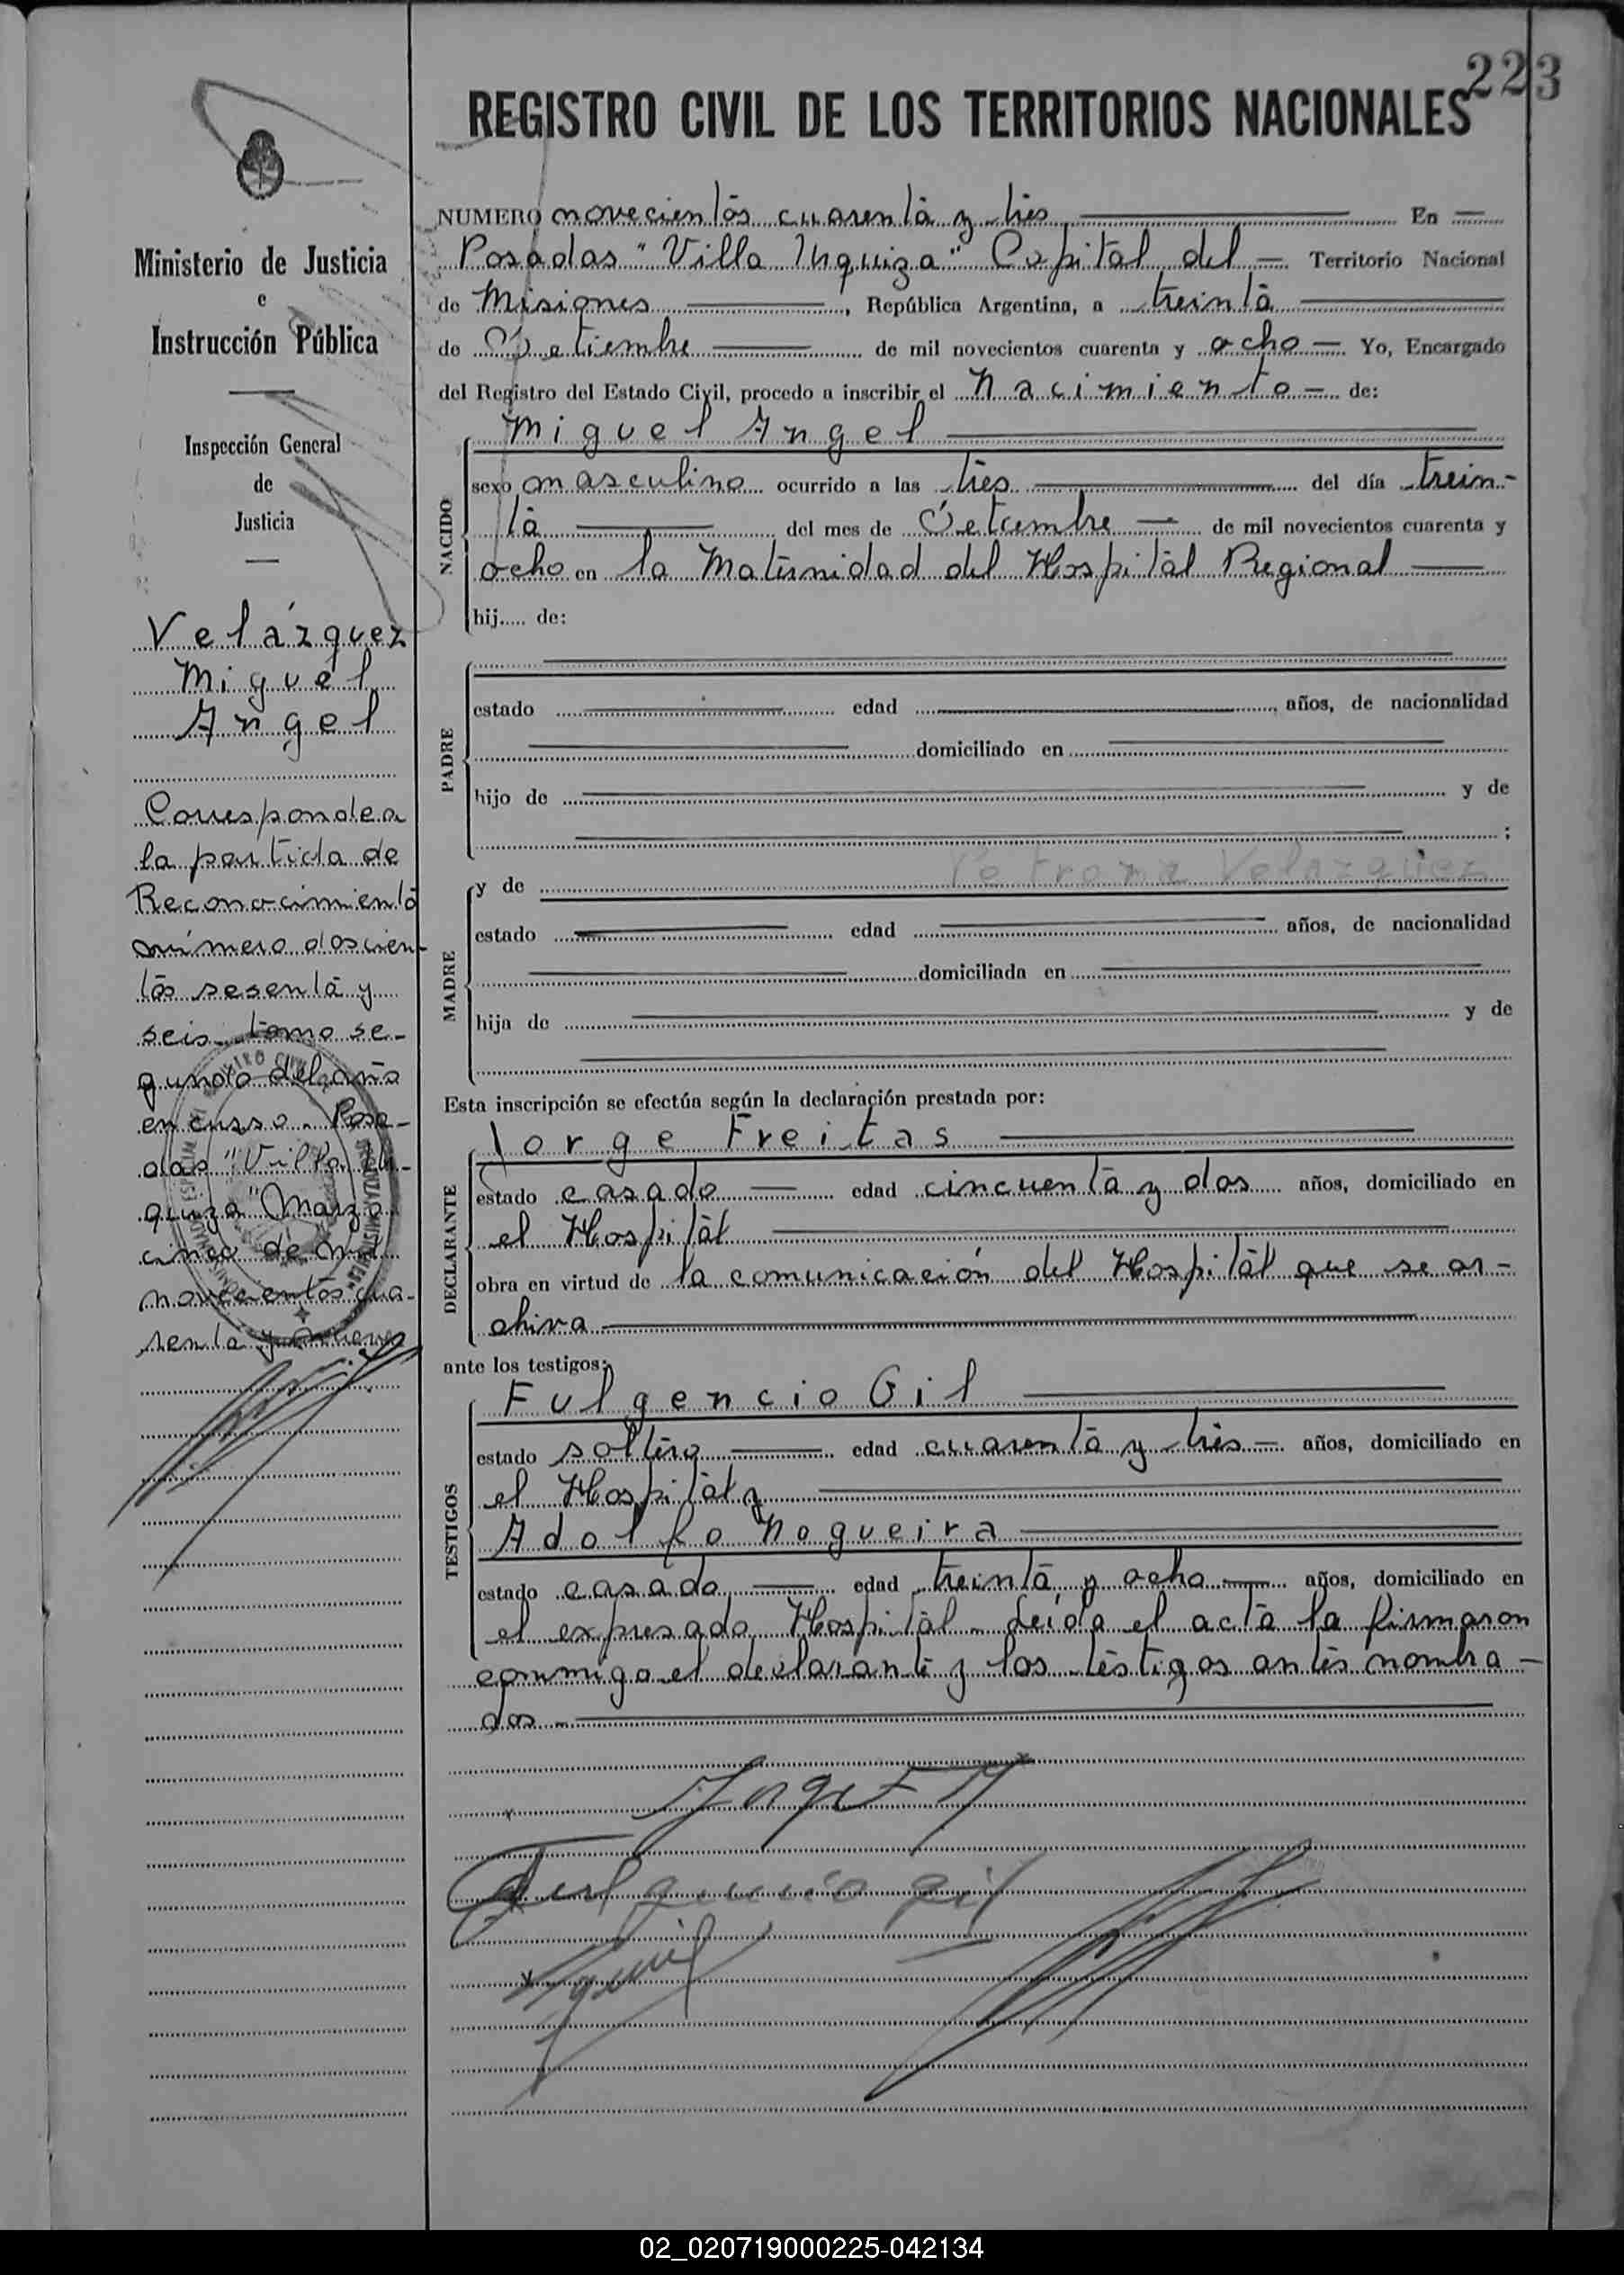 223
REGISTRO CIVIL DE LOS TERRITORIOS NACIONALES
Ministerio de Justicia
e
Instrucción Pública
Inspección General
de
Justicia
Velázquez
Miguel
Angel
Corresponde a
la partida de
Reconocimiento
número doscien-
tos sesenta y
seis tomo se-
gundo del año
en curso. Posa-
das "Villa Ur-
quiza" Marzo
cinco de mil
novecientos cua-
renta y nueve
NUMERO novecientos cuarenta y tres En
Posadas "Villa Urquiza" Capital del Territorio Nacional
de Misiones, República Argentina, a treinta
de Setiembre de mil novecientos cuarenta y ocho Yo, Encargado
del Registro del Estado Civil, procedo a inscribir el Nacimiento de:
Miguel Angel
NACIDO
sexo masculino ocurrido a las tres del día trein-
ta del mes de Setiembre de mil novecientos cuarenta y
ocho en la Maternidad del Hospital Regional
hij..... de:
PADRE
estado edad años, de nacionalidad
domiciliado en
hijo de y de
;
MADRE
y de Petrona Velazquez
estado edad años, de nacionalidad
domiciliada en
hija de y de
Esta inscripción se efectúa según la declaración prestada por:
Jorge Freitas
DECLARANTE
estado casado edad cincuenta y dos años, domiciliado en
el Hospital
obra en virtud de la comunicación del Hospital que se ar-
chiva
ante los testigos:
Fulgencio Gil
TESTIGOS
estado soltero edad cuarenta y tres años, domiciliado en
el Hospital y
Adolfo Nogueira
estado casado edad treinta y ocho años, domiciliado en
el expresado Hospital. Leída el acta la firmaron
conmigo el declarante y los testigos antes nombra-
dos.
Fulgencio gil
02_020719000225-042134